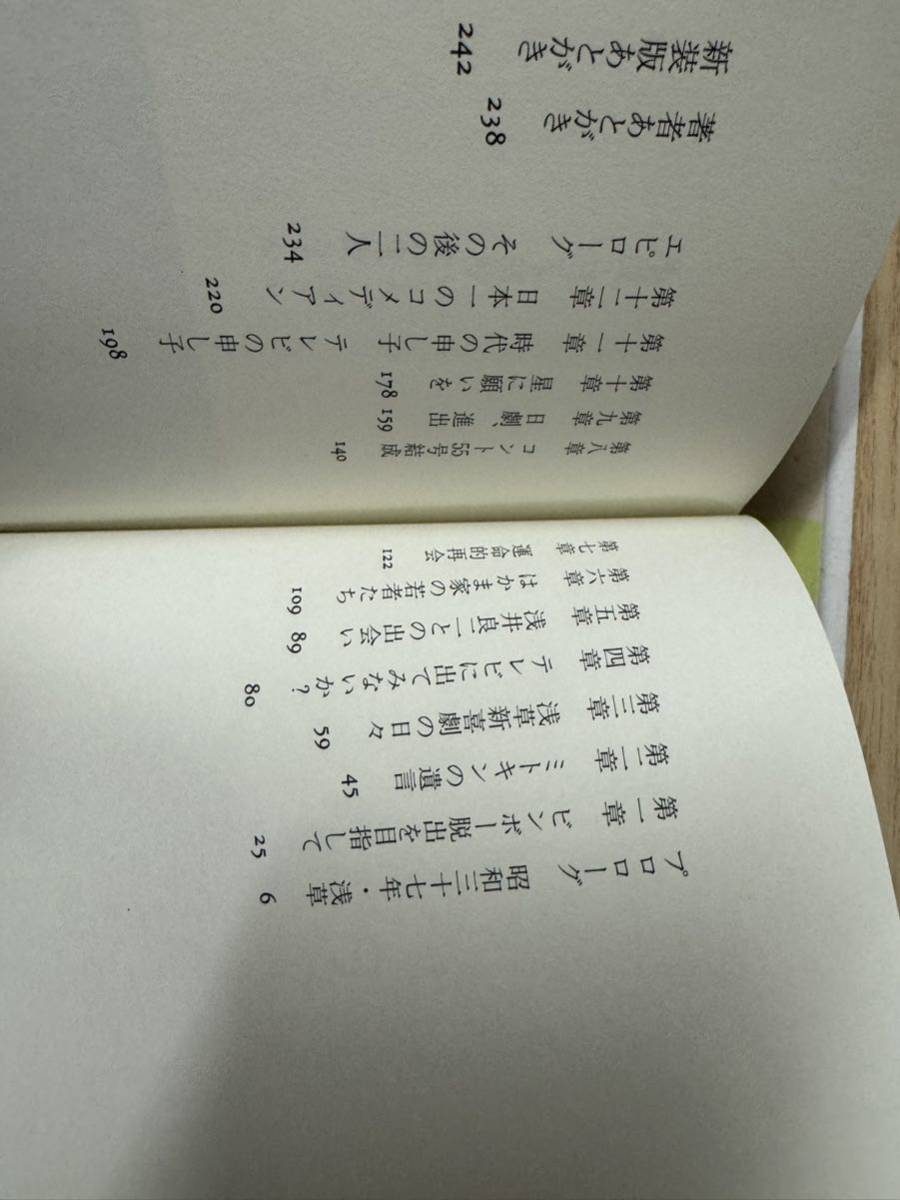 プロローグ 昭和三十七年・浅草 6
第一章 ビンボー脱出を目指して 25
第二章 ミトキンの遺言 45
第三章 浅草新喜劇の日々 59
第四章 テレビに出てみないか? 80
第五章 浅井良二との出会い 89
第六章 はかま家の若者たち 109
第七章 運命的再会 122
第八章 コント55号結成 140
第九章 日劇、進出 159
第十章 星に願いを 178
第十一章 時代の申し子 テレビの申し子 198
第十二章 日本一のコメディアン 220
エピローグ その後の二人 234
著者あとがき 238
新装版あとがき 242